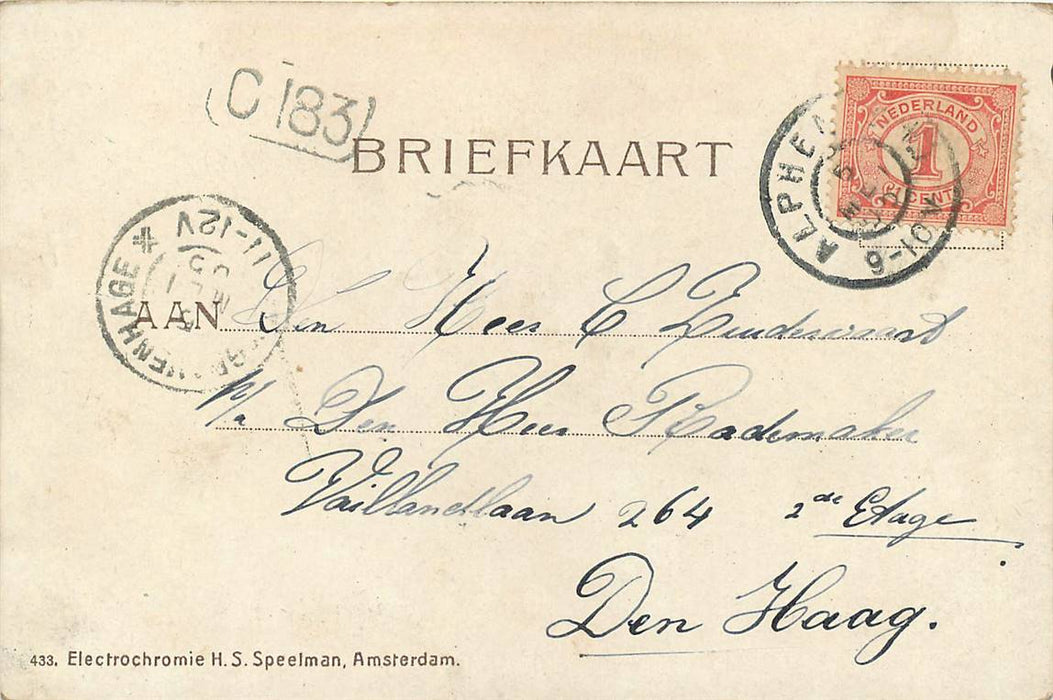 C 183
BRIEFKAART
NEDERLAND
1
CENT
ALPHEN
6-10V
11-12V
GRAVENHAGE
AAN Den Heer C Zuiderwaart
p/a Den Heer Rademaker
Vaillantlaan 264 2de Etage
Den Haag.
433. Electrochromie H. S. Speelman, Amsterdam.